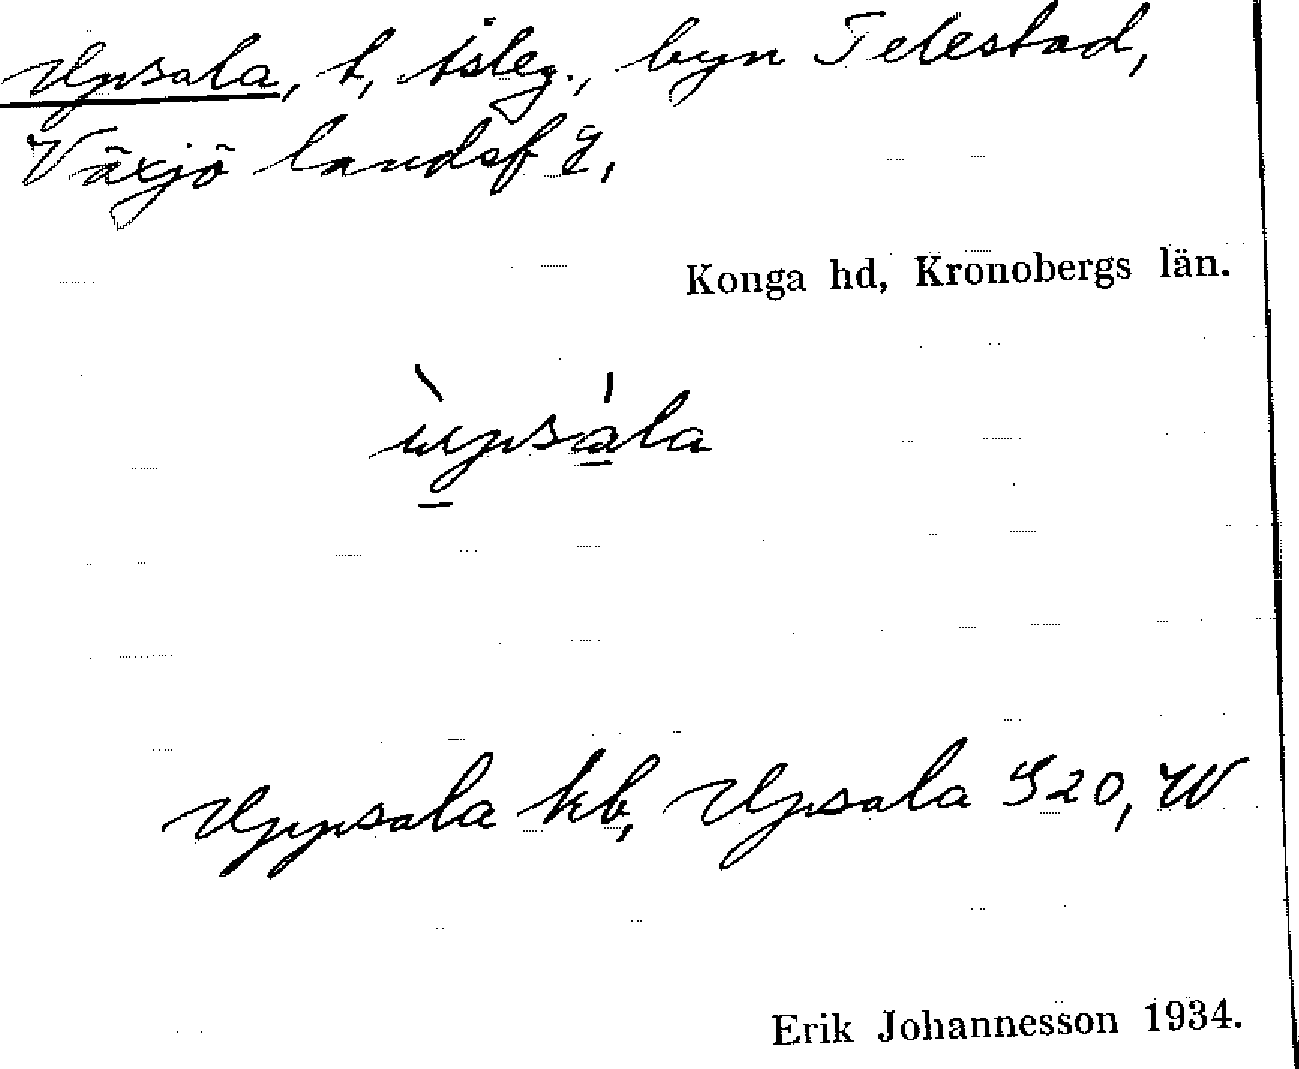 Upsala, t, tsleg., byn Telestad,
Växjö landsf g,
Konga hd, Kronobergs län.
ùpsála
Uppsala kb, Upsala S20, W
Erik Johannesson 1934.